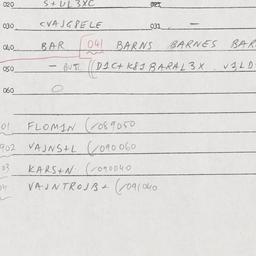 020 S+UL3XC 021
030 CVAJGBELE 031 —
040 BAR 041 BARNS BARNES BAR
050 — BUT. ((D1C+K81BARAL3X V3LD
060 O
01 FLOM1N (1089050
902 VAJNS+L (1090060
03 KARS+N (1090040
04 VAJNTROJB+ (1091040